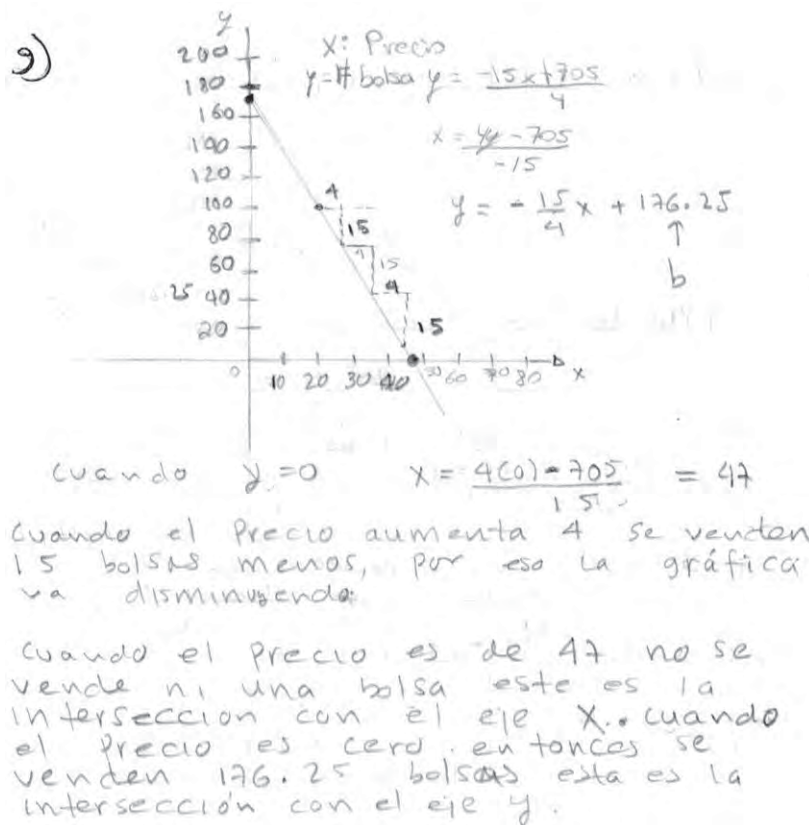 9)
y
200
180
160
140
120
100
80
60
25 40
20
0 10 20 30 40 50 60 70 80 x
4
15
15
4
15
x: Precio
y = # bolsa y = -15x+705 / 4
x = 4y - 705 / -15
y = - 15/4 x + 176.25
↑
b
cuando y = 0 x = 4(0) - 705 / 15 = 47
cuando el precio aumenta 4 se venden
15 bolsas menos, por eso la gráfica
va disminuyendo
cuando el precio es de 47 no se
vende ni una bolsa este es la
intersección con el eje X. cuando
el precio es cero entonces se
venden 176.25 bolsas esta es la
intersección con el eje y.